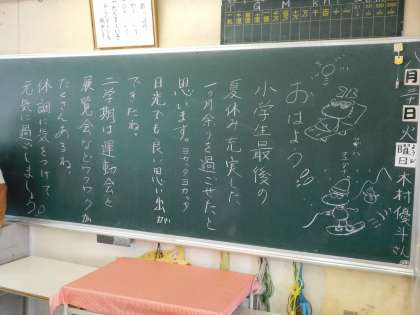 八月三十一日 火曜日 木村優斗さん
おはよう
小学生最後の
夏休み充実した
一ヶ月余りを過ごせたと
思います。ヨカッタヨカッタ
日光でも良い思い出が
できたね。
二学期は運動会と
展覧会などワクワクが
たくさんあるね。
体調に気をつけて、
元気に過ごしましょう。